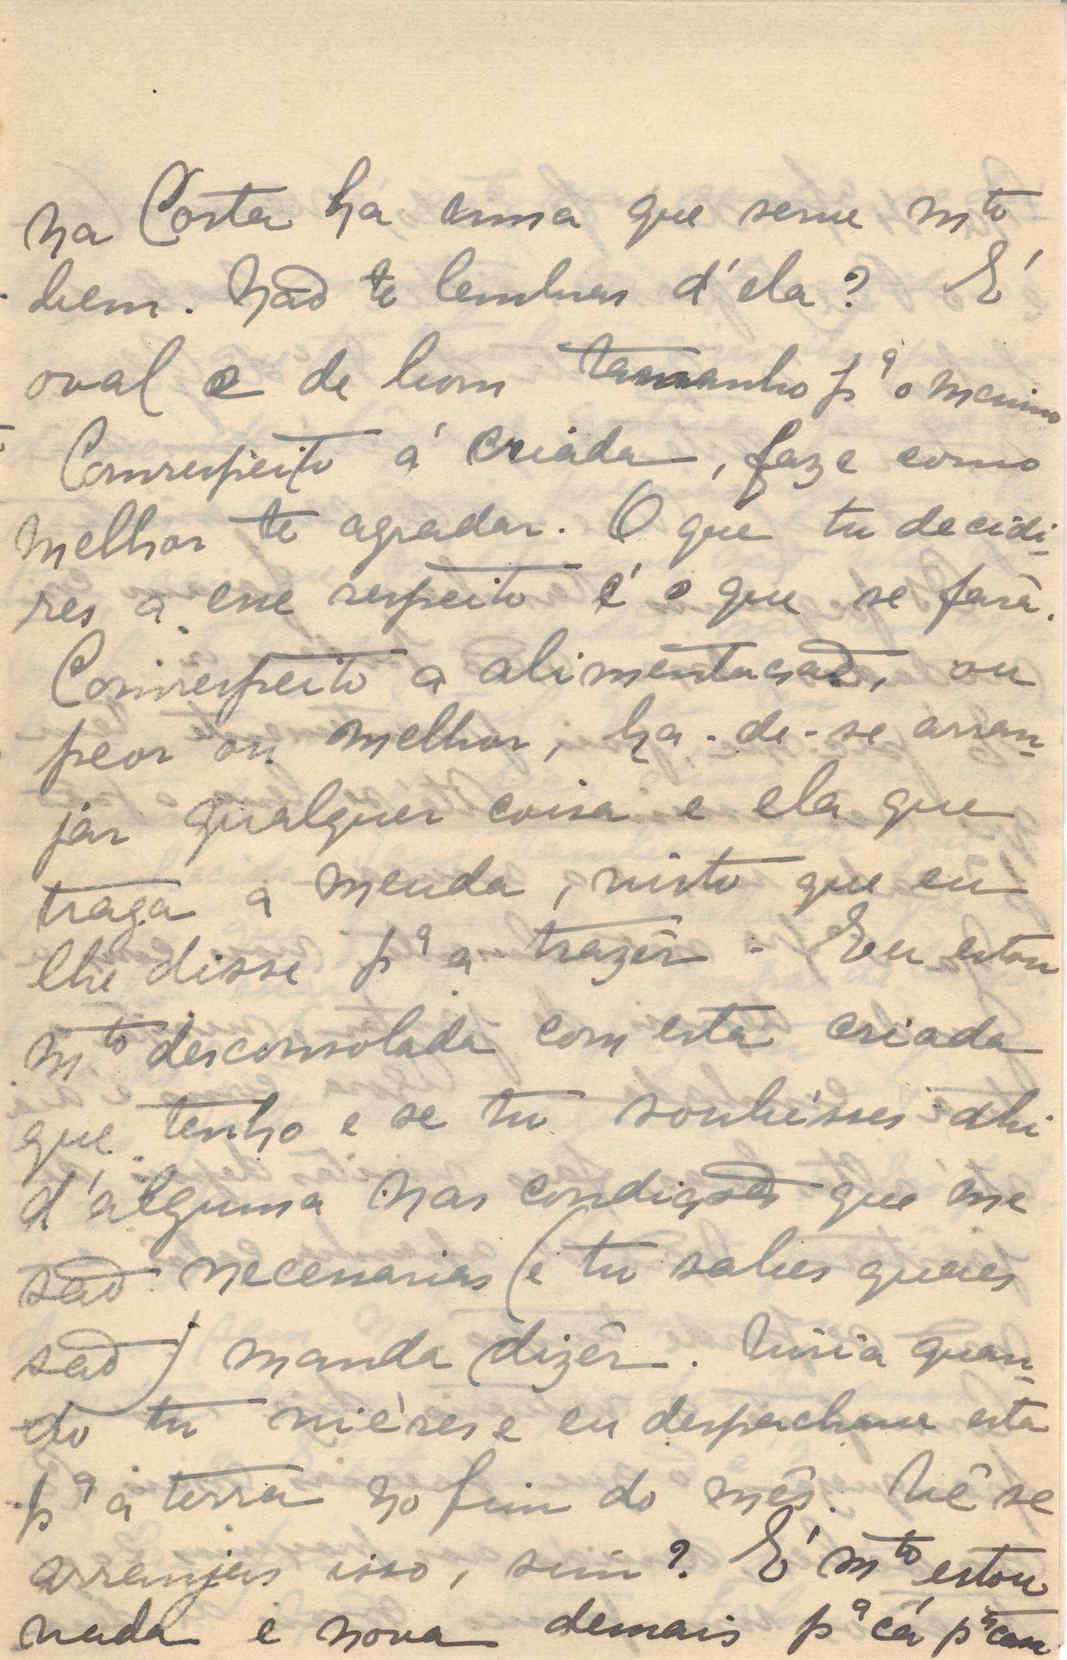 na Costa ha uma que serve mto
bem. Não te lembras d'ela? É
oval e de bom tamanho pª o menino
Comrespeito á criada, faze como
melhor te agradar. O que tu decidi-
res a esse respeito é o que se fará.
Comrespeito a alimentação, ou
peor ou melhor, ha-de-se arran-
jar qualquer coisa e ela que
traga a meuda, visto que eu
lhe disse pª a trazêr. Eu estou
mto desconsolada com esta criada
que tenho e se tu soubésses ahi
d'alguma nas condições que me
são necessarias (e tu sabes quaes
são) manda dizêr. Viria quan-
do tu viéres e eu despachava esta
pª a terra no fim do mês. Vê se
arranjas isso, sim? É mto estou
vada e nova demais pª cá pª casa